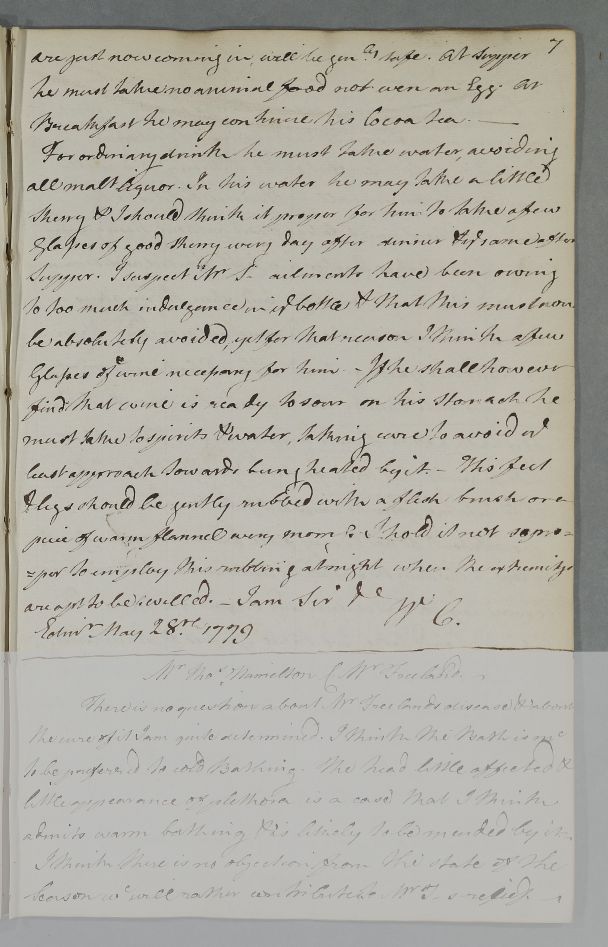 7
are just now coming in, will be gen.ly safe. At Supper
he must take no animal food not even an Egg. At
Breakfast he may continue his Cocoa tea. —
For ordinary drink he must take water, avoiding
all malt liquor. In his water he may take a little
Sherry & I should think it proper for him to take a few
Glasses of good Sherry every day after dinner & some after
Supper. I suspect Mr F. ailments have been owing
to too much indulgence in ye bottle & that this must now
be absolutely avoided, yet for that reason I think a few
Glasses of wine necessary for him. — If he shall however
find that wine is ready to sour on his stomach he
must take to spirits & water, taking care to avoid ye
least approach towards being heated by it. — His feet
& legs should be gently rubbed with a flesh brush or a
piece of warm flannel every morng & I hold it not so pro=
=per to employ this rubbing at night when the extremitys
are apt to be swelled. — I am Sir &c
W. C.
Edinr. May 28th 1779
Mr Thos. Hamielton (Mr Freeland. —
There is no question about Mr Freelands disease & about
the cure of it I am quite determined. I think the Bath is
to be preferred to cold Bathing. The head little affected &
little appearance of plethora is a case that I think
admits warm bathing & is likely to be mended by it.
I think there is no objection from the state of the
Season wc will rather contribute to Mr F.s relief. —